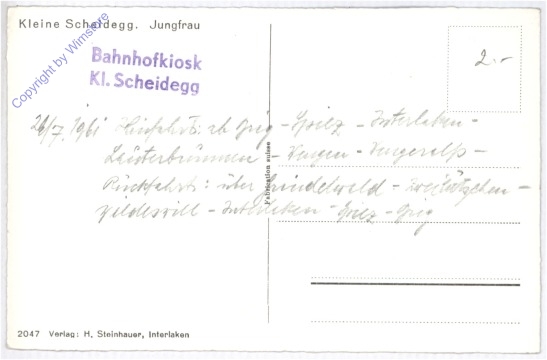 Kleine Scheidegg. Jungfrau
Copyright by Wimstore
Bahnhofkiosk
Kl. Scheidegg
2.-
26/7. 1961 Hinfahrt: ab Brig - Spiez - Interlaken -
Lauterbrunnen - Wengen - Wengeralp -
Rückfahrt: über Grindelwald - Zweilütschen -
Wilderswil - Interlaken - Spiez - Brig
Fabrication suisse
2047 Verlag: H. Steinhauer, Interlaken